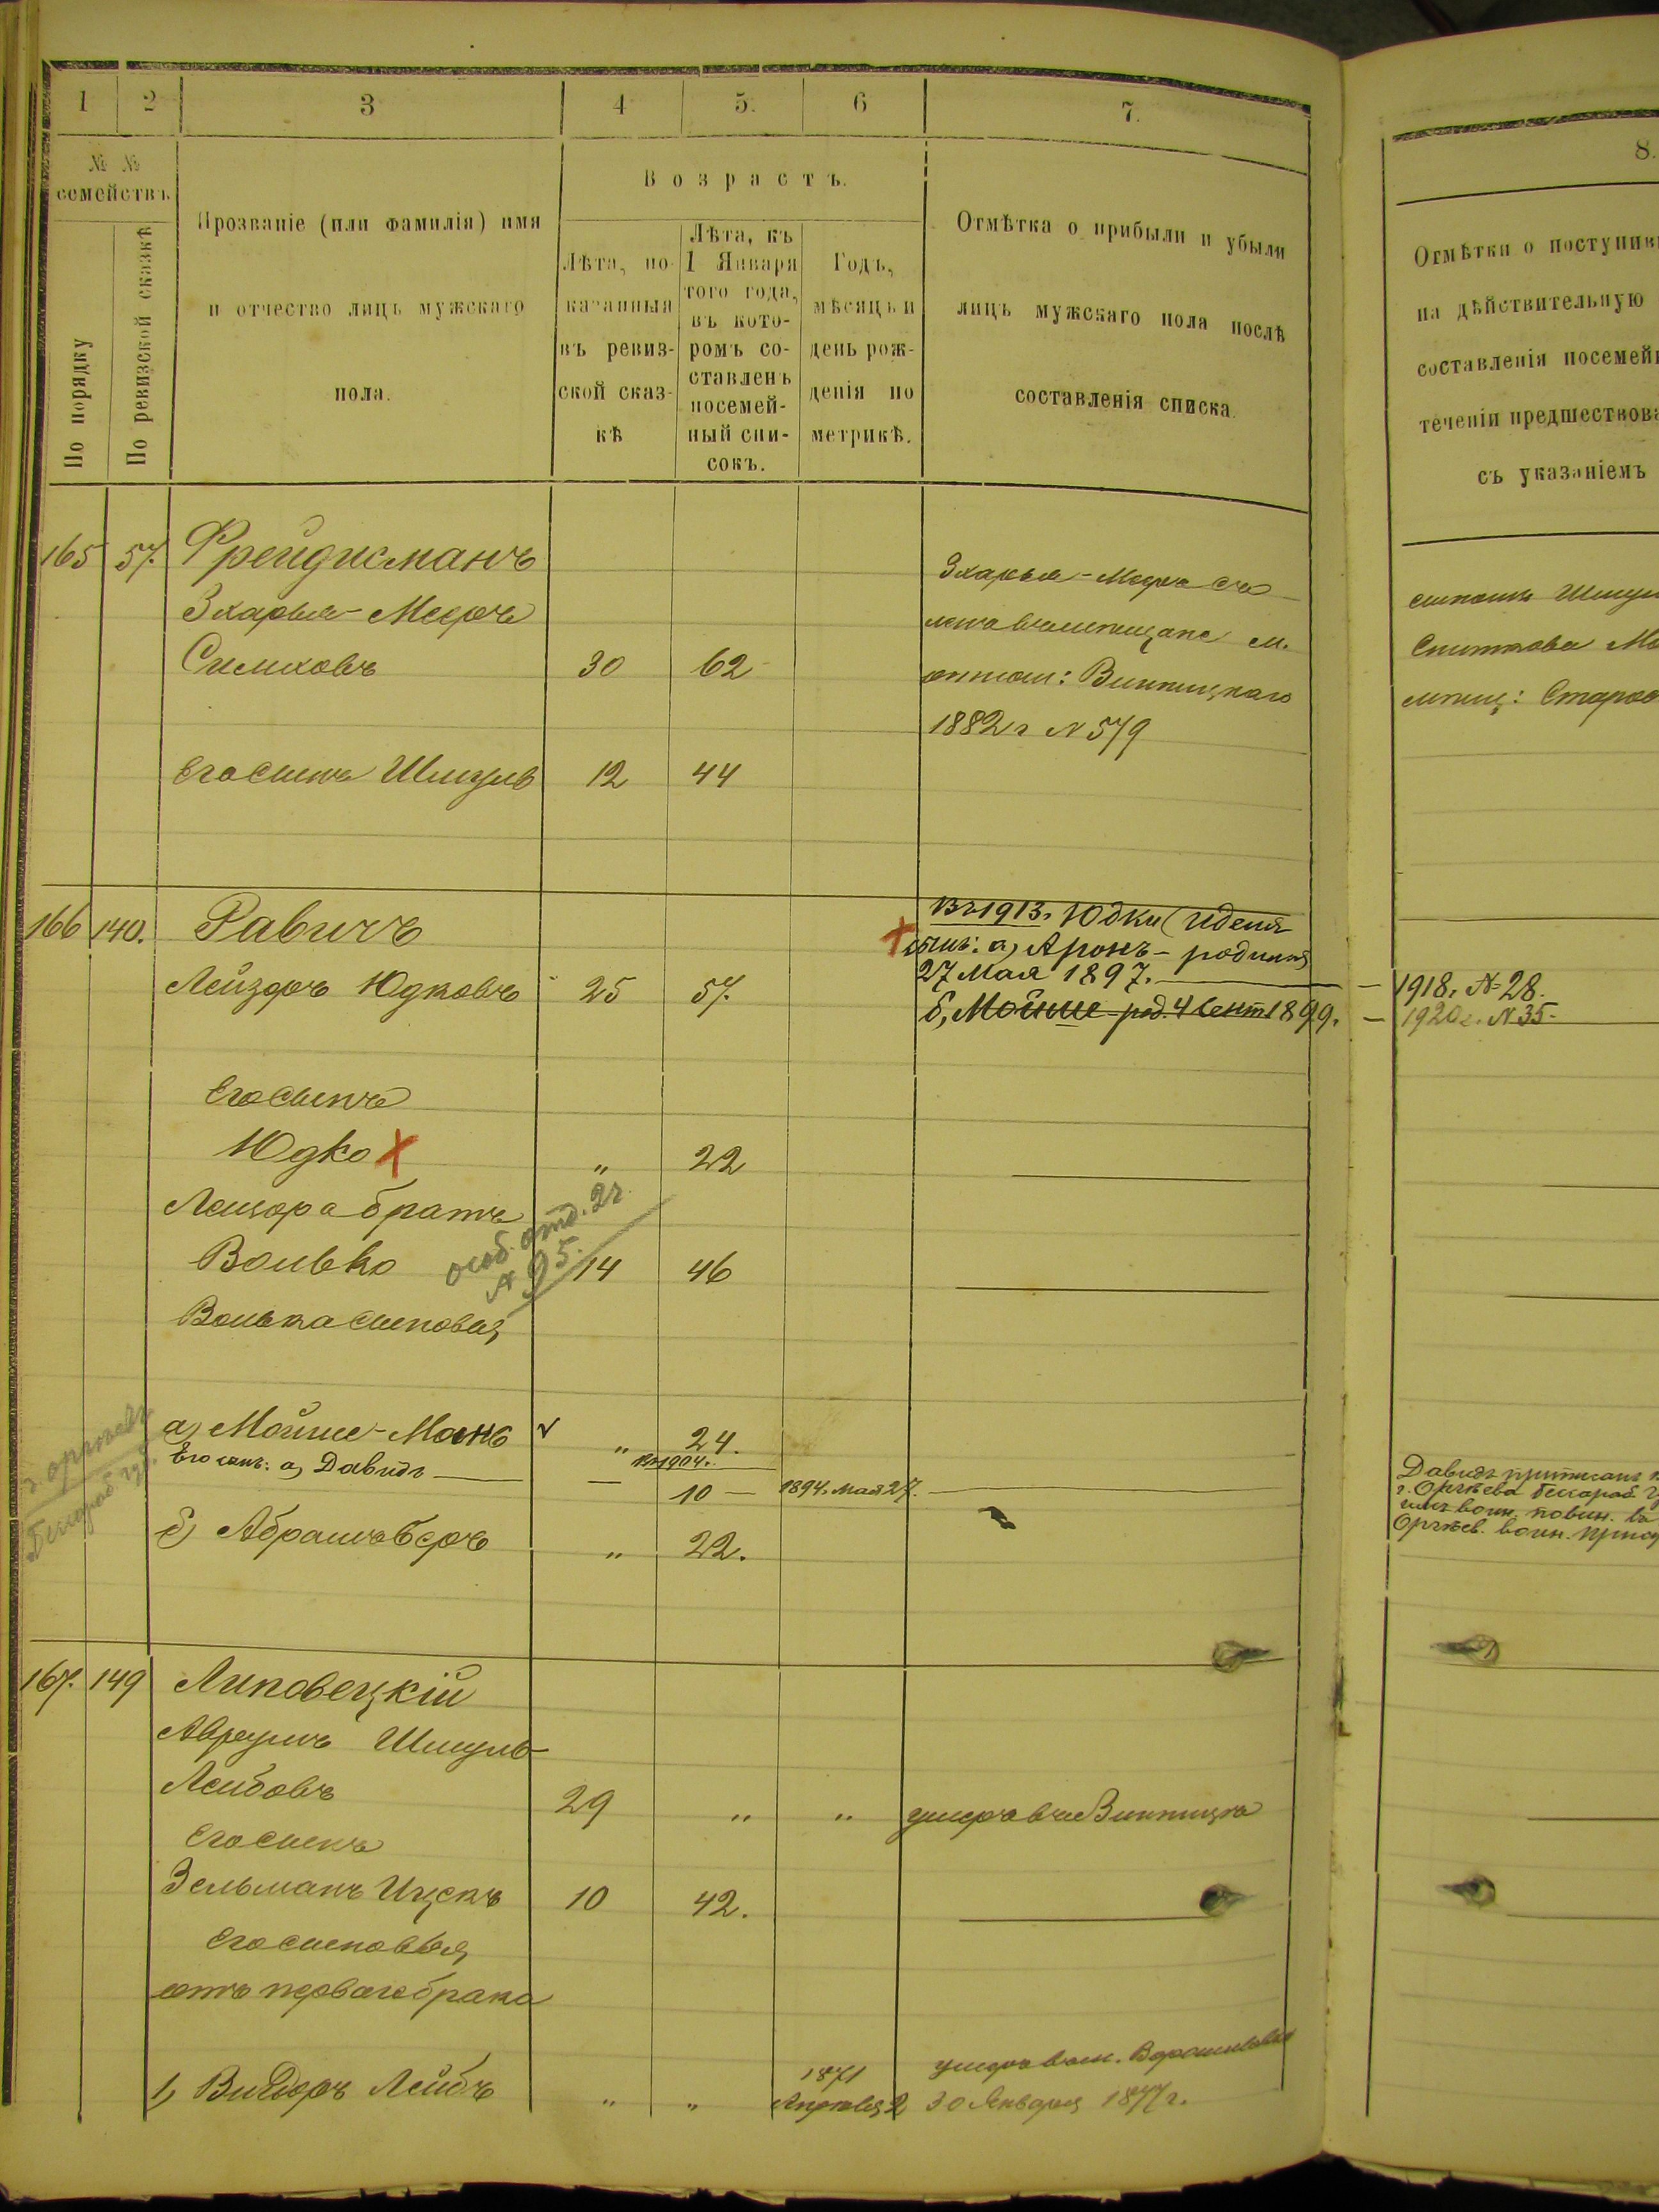 1 2 3 4 5. 6 7.
8.
№ № семействъ
По порядку
По ревизской сказкѣ
Прозваніе (или фамилія) имя
и отчество лицъ мужскаго
пола.
Возрастъ.
Лѣта, по-
казанныя
въ ревиз-
ской сказ-
кѣ
Лѣта, къ
1 Января
того года,
въ кото-
ромъ со-
ставленъ
посемей-
ный спи-
сокъ.
Годъ,
мѣсяцъ и
день рож-
денія по
метрикѣ.
Отмѣтка о прибыли и убыли
лицъ мужскаго пола послѣ
составленія списка.
Отмѣтки о
на дѣйствительную
составленія
теченіи
съ указаніемъ
165 57. Фрейдисманъ
Зхарья-Мееръ
Симховъ 30 62
Зхарья-Меера
м.
Винницкаго
1882 г N 579
Его сынъ Шмуль 12 44
166 140. Равичъ
Лейзоръ Юдковъ 25 57.
Въ 1913г. Юдки (Иделя
сын: а) Аронъ - родился
27 Мая 1897. — 1918г. № 28.
б, Мойше род. 4 Сент. 1899. — 1920 г. N 35-
Его сынъ
Юдко „ 22
Лейзора братъ
Волько 14 46
особ. отд. 2 г.
№ 95.
Волька сыновья
а) Мойше-Манъ „ 24.
Его сын: а) Давидъ — 10 — 1894г. мая 27.
Въ 1904г.
б) Абрамъ Беръ „ 22.
г. Оргѣевъ
Бессараб. губ.
Давидъ приписанъ
г. Оргѣева Бессараб.
воин. повин. въ
Оргѣев. воин.
167. 149 Липовецкій
Авр​умъ Шмуль-
Лейбовъ 29 „ „ умеръ въ Винницѣ
Его сынъ
Зельманъ Ицекъ 10 42.
Его сыновья
отъ перваго брака
1, Вигдоръ Лейбъ „ „ 1871
Апрѣля 2
умеръ въ м. Ворошиловкѣ
30 Января 1877 г.